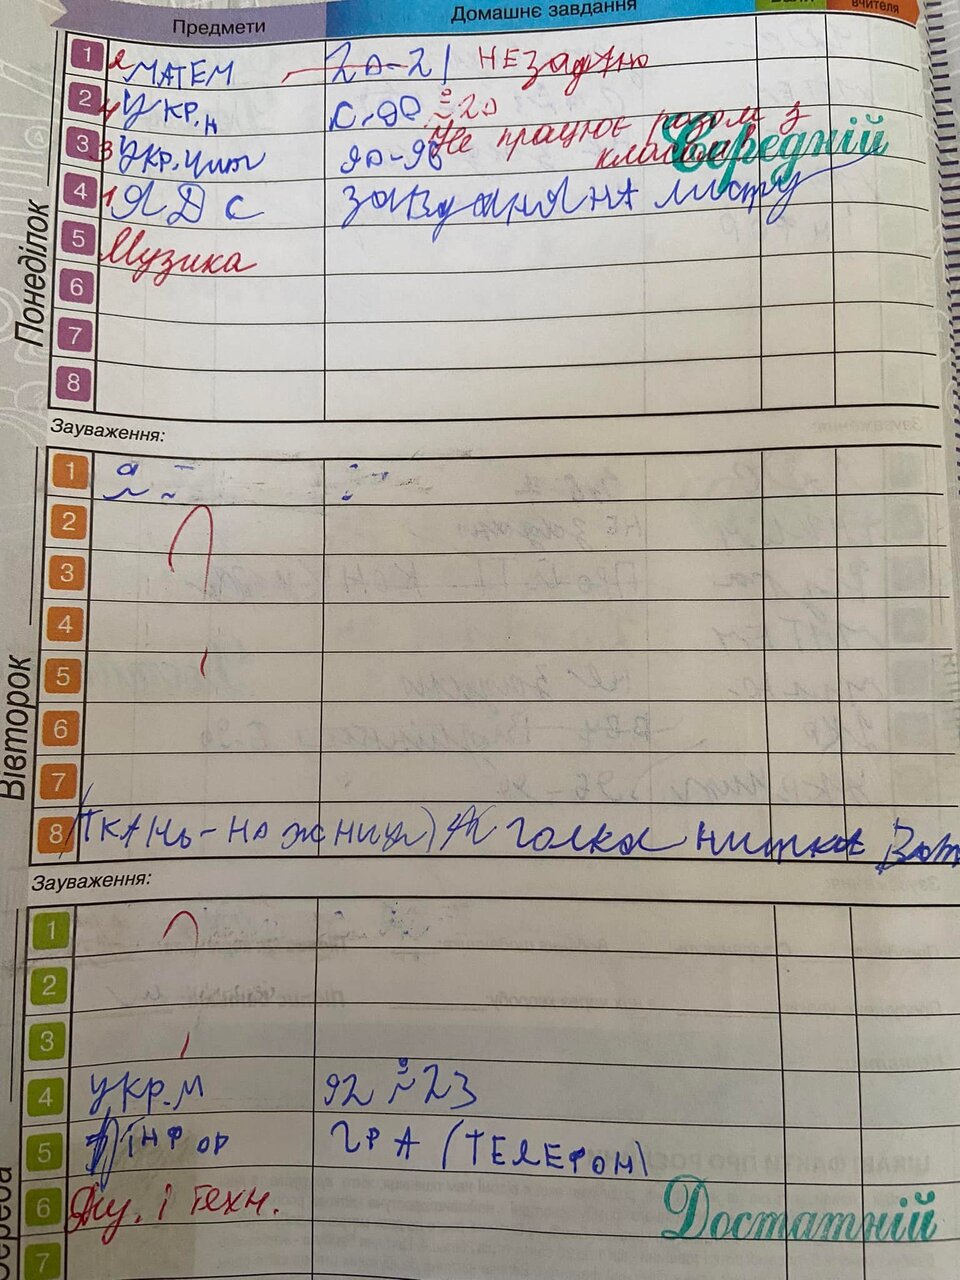 Предмети Домашнє завдання вчителя
Понеділок
1 2 МАТЕМ 20-21 НЕ задано
2 4 УКР.
3 3 Укр. чит 90-96 Не працює разом з класом Середній
4 1 ЯДС завдання на листу
5 Музика
6
7
8
Зауваження:
Вівторок
1
2
3
4
5
6
7
8 ТКАНЬ-НОЖНИЦІ голка нитка
Зауваження:
1
2
3
4 УКР.М 92 23
5 ІНФОР ГРА (ТЕЛЕФОН)
6 і техн. Достатній
7